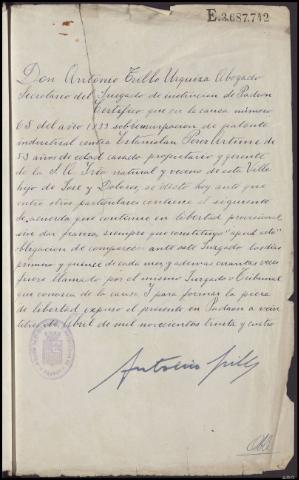 E.3.687.742
Don Antonio Trillo Urquiza Abogado
Secretario del Juzgado de instrucción de Padrón
Certifico: que en la causa número
68 del año 1933 sobre usurpación de patente
industrial contra Estanislao Perez Artime de
53 años de edad casado propietario y gerente
de la S. L. natural y vecino de esta Villa
hijo de Jose y Dolores, se dictó hoy auto que
entre otros particulares contiene el siguiente
se acuerda que continue en libertad provisional
sin dar fianza, siempre que constituya "apud acta"
obligacion de comparecer ante este Juzgado los dias
primero y quince de cada mes y ademas cuantas veces
fuere llamado por el mismo Juzgado o Tribunal
que conozca de la causa Y para formar la pieza
de libertad expido el presente en Padrón a
de Abril de mil novecientos treinta y cuatro
Antonio Trillo